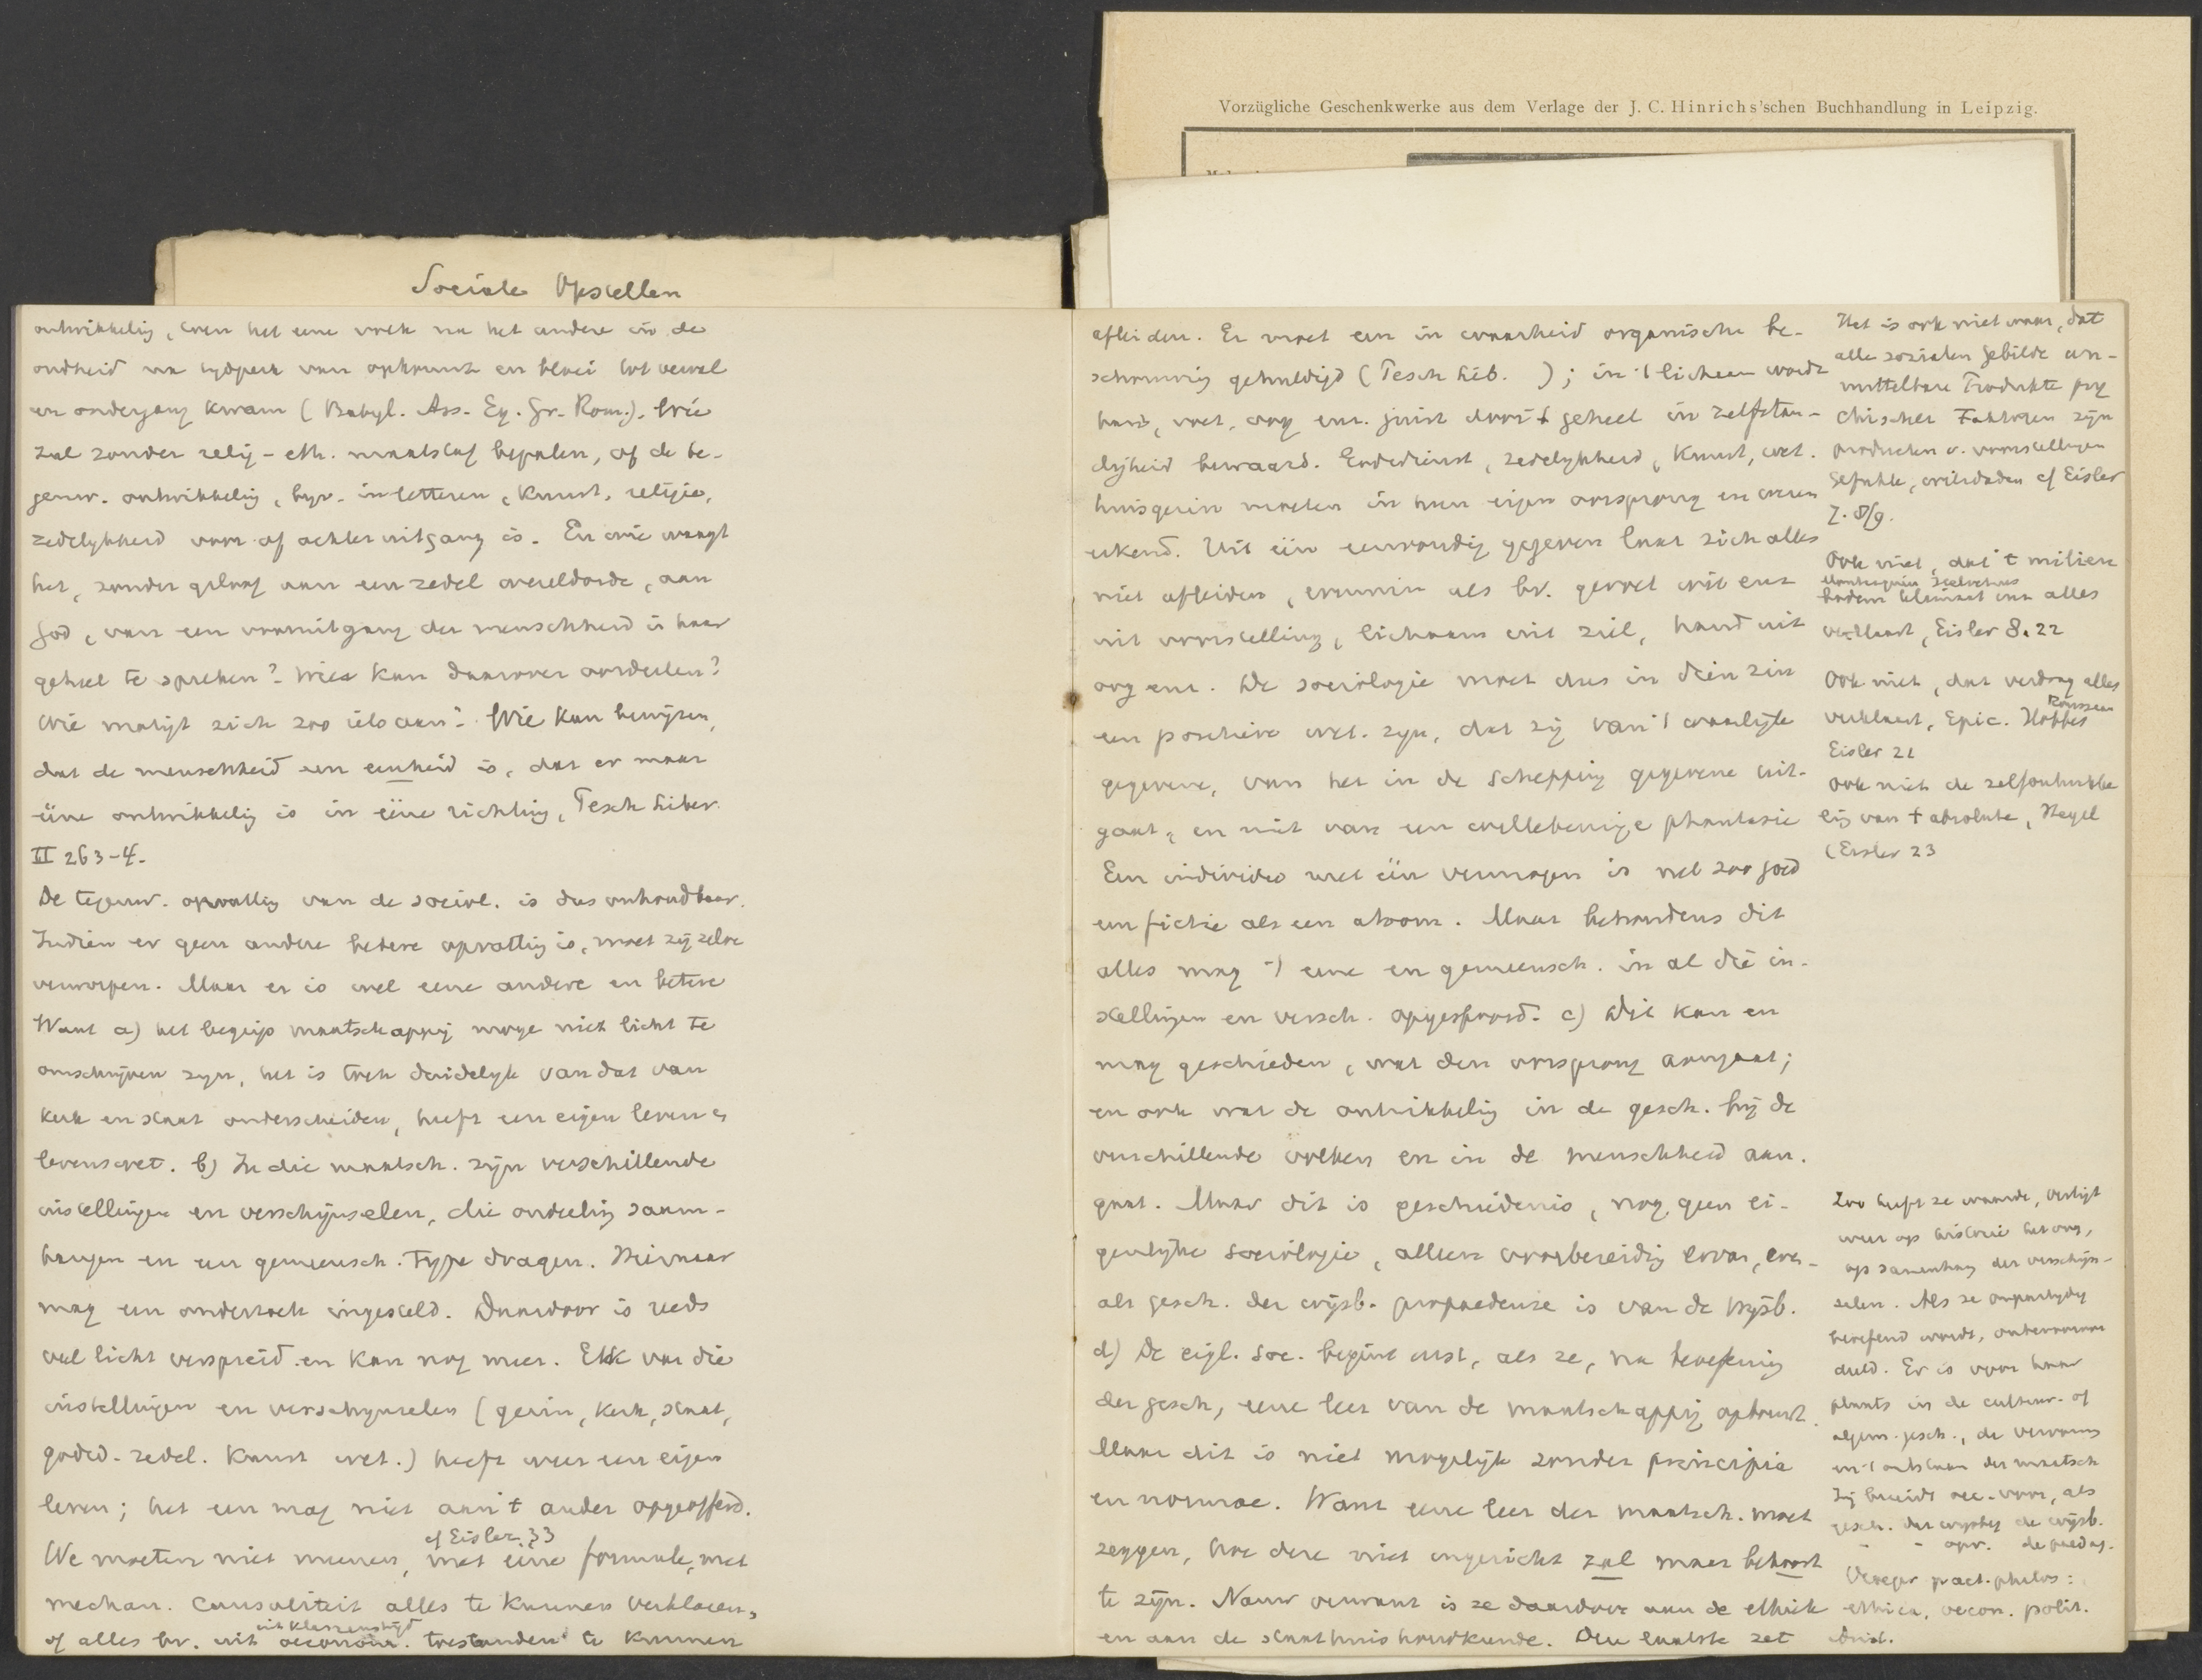 Vorzügliche Geschenkwerke aus dem Verlage der J. C. Hinrichs'schen Buchhandlung in Leipzig.
Sociale Opstellen
ontwikkelig, even het eene volk na het andere in de
oudheid na tydperk van opkomst en bloei tot verval
en ondergang kwam (Babyl. Ass. Eg. Gr. Rom.). Wie
zal zonder relig-eth. maatstaf bepalen, of de te-
genw. ontwikkelig, byv. in letteren, kunst, religie,
zedelykheid voor of achteruitgang is. En wie waagt
het, zonder geloof aan een zedel wereldorde, aan
God, van een vooruitgang der menschheid in haar
geheel te spreken? Wie kan daarover oordeelen?
Wie matigt zich zoo iets aan? Wie kan bewijzen,
dat de menschheid een eenheid is, dat er maar
ééne ontwikkelig is in ééne richting, Tesch Liber.
II 263-4.
De tegenw. opvattig van de sociol. is dus onhoudbaar.
Indien er geen andere betere opvattig is, moet zij zelve
verworpen. Maar er is wel eene andere en betere
Want a) het begrip maatschappij moge niet licht te
omschrijven zyn, het is toch duidelyk van dat van
kerk en staat onderscheiden, heeft een eigen leven &
levenswet. b) In die maatsch. zijn verschillende
instellingen en verschijnselen, die onderlig saam-
hangen en een gemeensch. type dragen. Hiernaar
mag een onderzoek ingesteld. Daardoor is reeds
veel licht verspreid en kan nog meer. Elk van die
instellingen en verschynselen (gezin, kerk, staat,
godsd. zedel. kunst wet.) heeft weer een eigen
leven; het een mag niet aan 't ander opgeofferd.
cf Eisler 33
We moeten niet meenen, met ééne formule, met
mechan. causaliteit alles te kunnen verklaren,
uit klassenstrijd
of alles bv. uit oeconom. toestanden te kunnen
afleiden. Er moet een in waarheid organische be-
schouwig gehuldigd (Tesch Lib. ); in 't lichaam wordt
hand, voet, oog enz. juist door 't geheel in zelfstan-
digheid bewaard. Godsdienst, zedelykheid, kunst, wet.
huisgezin moeten in hun eigen oorsprong en wezen
erkend. Uit één eenvoudig gegeven laat zich alles
niet afleiden, evenmin als bv. gevoel uit enz
uit voorstelling, lichaam uit ziel, hand uit
oog enz. De sociologie moet dus in dien zin
een positieve wet. zyn, dat zij van 't werkelijke
gegevene, van het in de schepping gegevene uit-
gaat, en niet van een willekeurige phantasie
Een individu met één vermogen is net zoo goed
een fictie als een atoom. Maar behoudens dit
alles mag 't eene en gemeensch. in al die in-
stellingen en versch. opgespoord. c) Dit kan en
mag geschieden, wat den oorsprong aangaat;
en ook wat de ontwikkelig in de gesch. bij de
verschillende volken en in de menschheid aan-
gaat. Maar dit is geschiedenis, nog geen ei-
genlyke sociologie, alleen voorbereidig ervan, even-
als gesch. der wijsb. propaedeuse is van de wijsb.
d) De eigl. soc. begint eerst, als ze, na beoefenig
der gesch, eene leer van de maatschappij opbouwt.
Maar dit is niet mogelijk zonder principia
en normae. Want eene leer der maatsch. moet
zeggen, hoe deze niet ingericht zal maar behoort
te zijn. Nauw verwant is ze daardoor aan de ethiek
en aan de staathuishoudkunde. Deze laatste zet
Het is ook niet waar, dat
alle sozialen Gebilde un-
mittelbare Produkte psy
chischer Faktoren zijn
producten v. voorstellingen
Gefuhle, wilsdaden cf Eisler
Z. 8/9.
Ook niet, dat 't milieu
Montesquieu Helvetius
bodem klimaat enz alles
verklaart, Eisler 8. 22
Ook niet, dat verdrag alles
Rousseau
verklaart, Epic. Hobbes
Eisler 22
Ook niet de zelfontwikke
lig van 't absolute, Hegel
(Eisler 23
Zoo heeft ze waarde, vestigt
weer op historie het oog,
op samenhang der verschijn-
selen. Als ze onpartydig
beoefend wordt,
Er is voor haar
plaats in de cultuur- of
algem. gesch.,
en 't ontstaan der maatsch
Zij bereidt soc. voor, als
gesch. der wijsbeg de wijsb.
- - opv. de paedag.
Vroeger pract. philos:
ethica, oecon. polit.